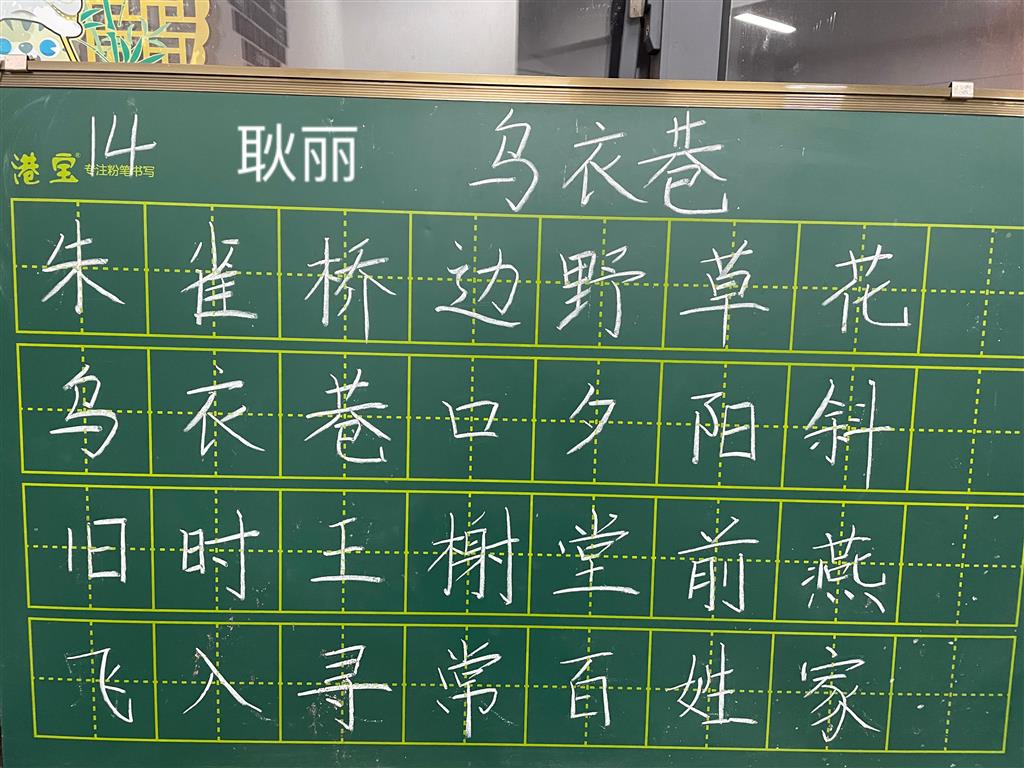 14 耿丽 乌衣巷
港宝® 专注粉笔书写
朱雀桥边野草花
乌衣巷口夕阳斜
旧时王榭堂前燕
飞入寻常百姓家